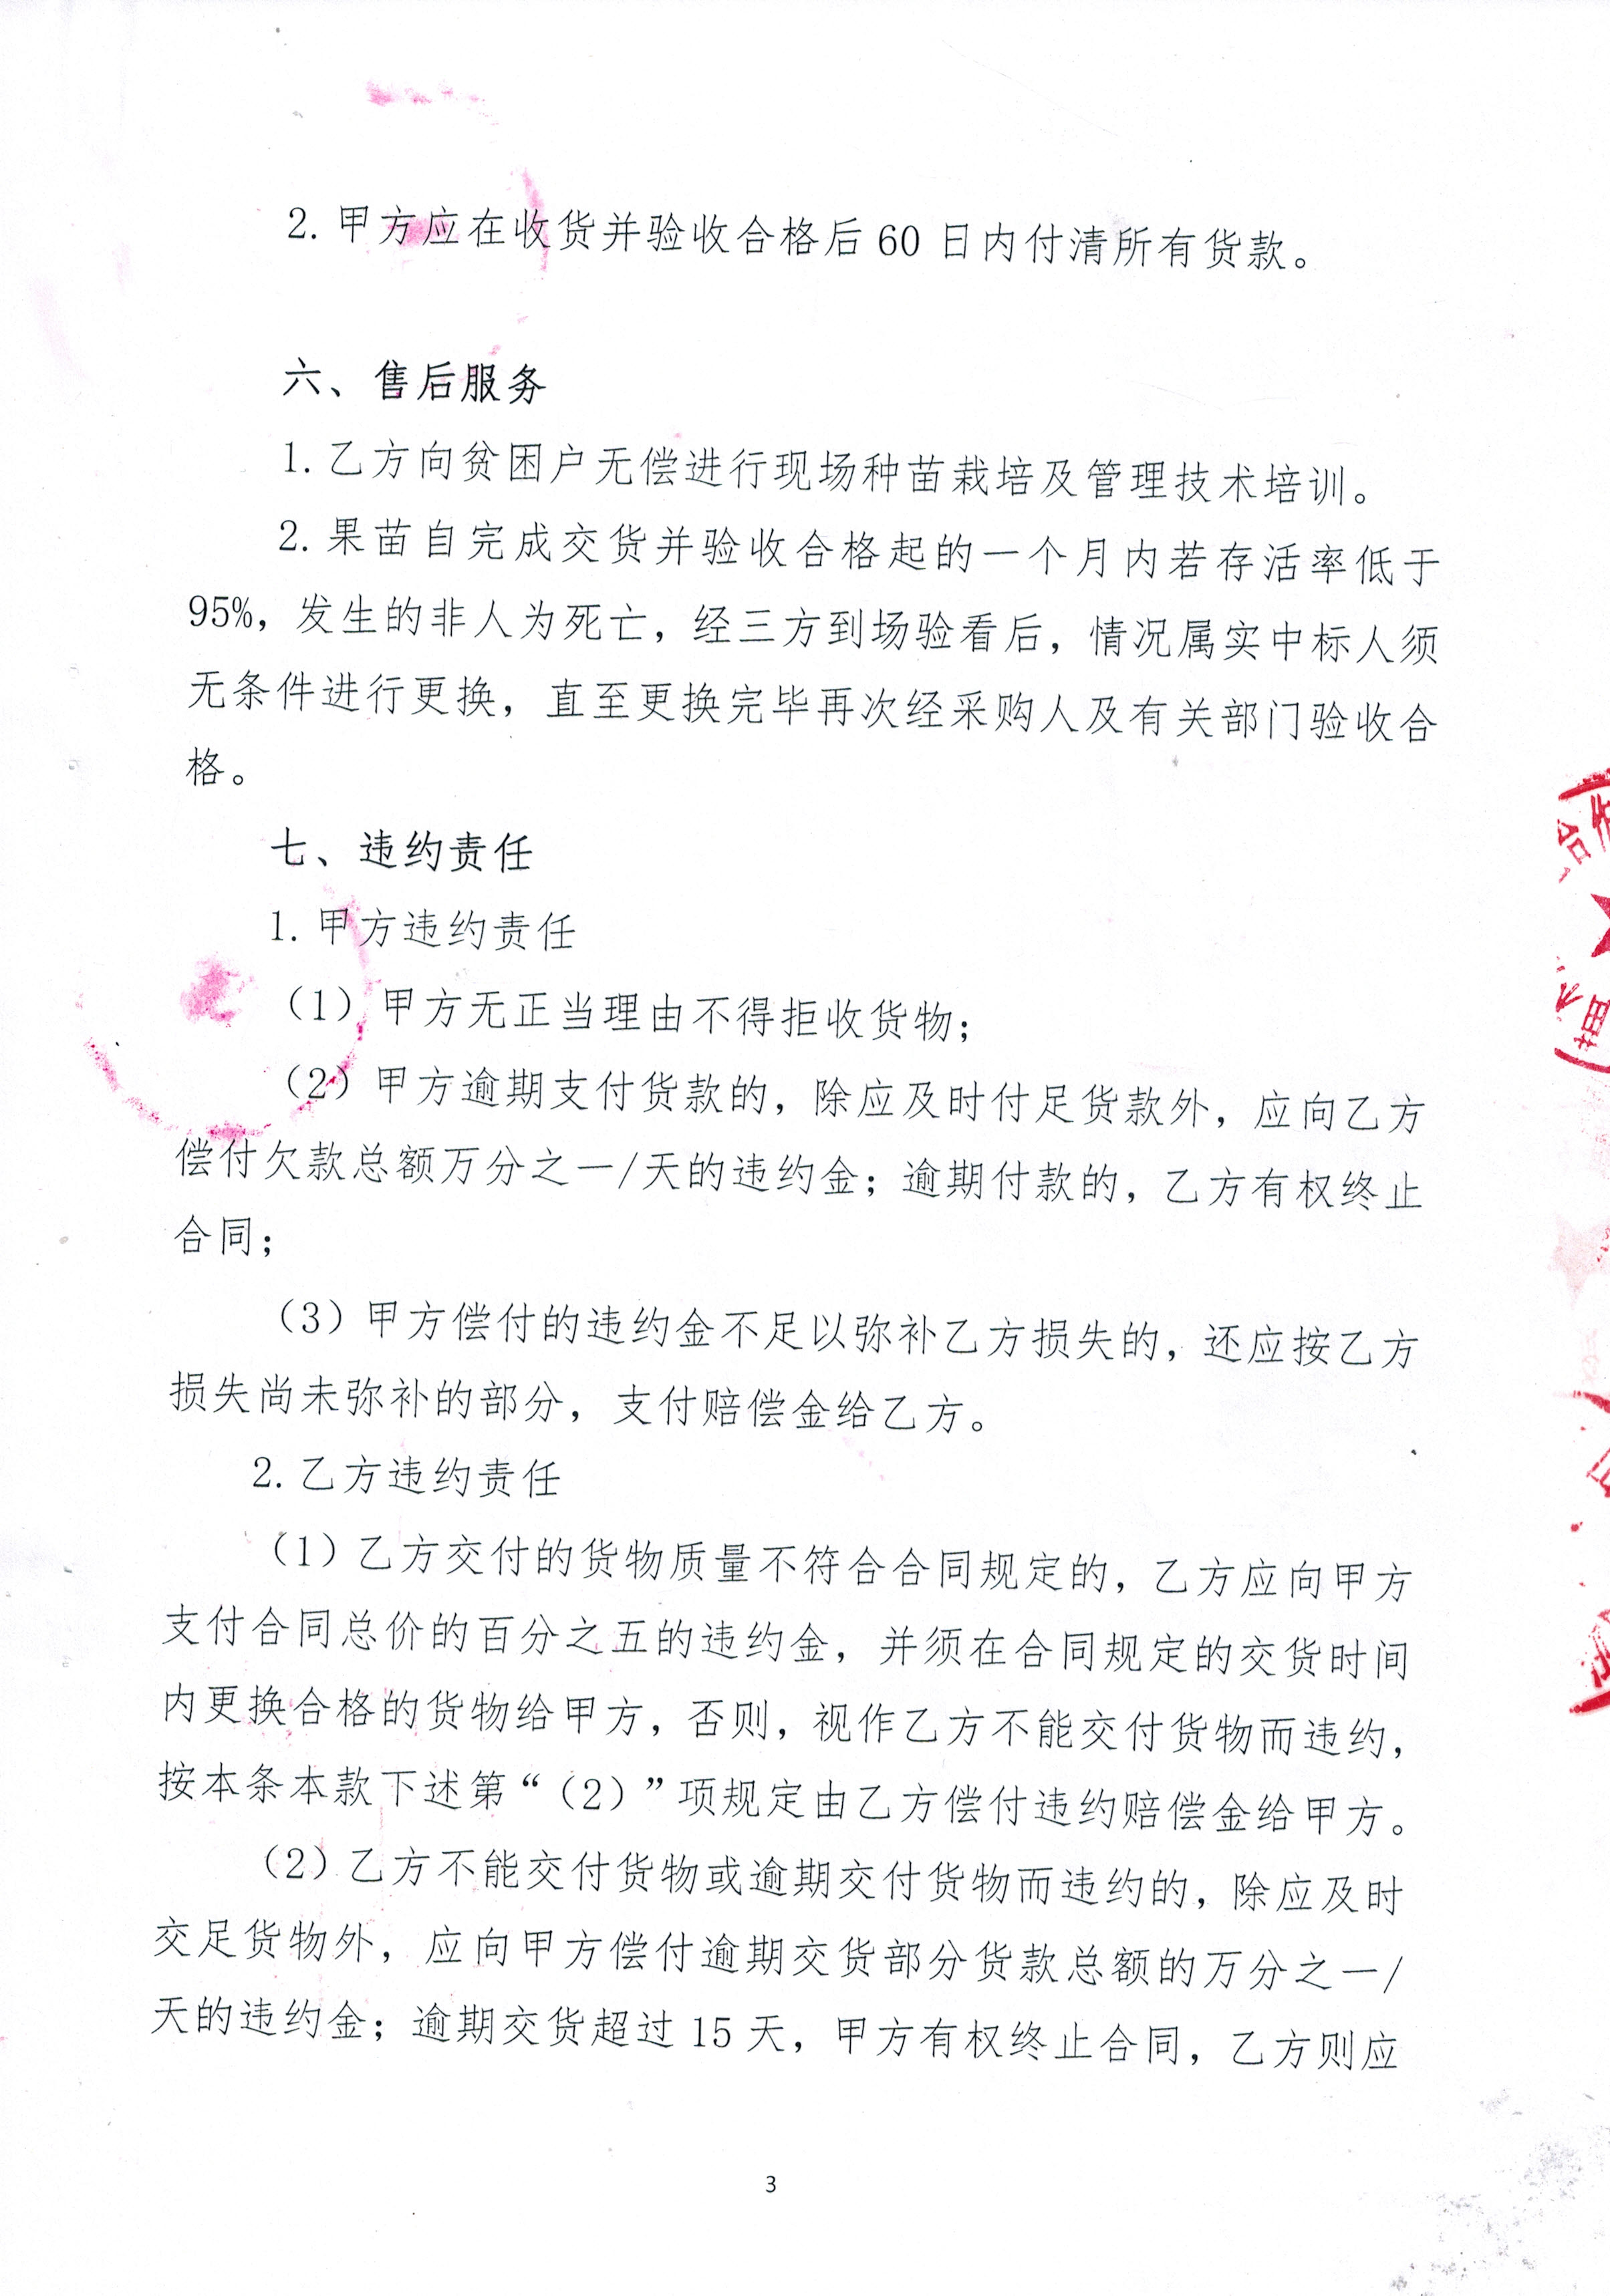 2. 甲方应在收货并验收合格后 60 日内付清所有货款。
六、售后服务
1. 乙方向贫困户无偿进行现场种苗栽培及管理技术培训。
2. 果苗自完成交货并验收合格起的一个月内若存活率低于
95%，发生的非人为死亡，经三方到场验看后，情况属实中标人须
无条件进行更换，直至更换完毕再次经采购人及有关部门验收合
格。
七、违约责任
1. 甲方违约责任
（1）甲方无正当理由不得拒收货物；
（2）甲方逾期支付货款的，除应及时付足货款外，应向乙方
偿付欠款总额万分之一/天的违约金；逾期付款的，乙方有权终止
合同；
（3）甲方偿付的违约金不足以弥补乙方损失的，还应按乙方
损失尚未弥补的部分，支付赔偿金给乙方。
2. 乙方违约责任
（1）乙方交付的货物质量不符合合同规定的，乙方应向甲方
支付合同总价的百分之五的违约金，并须在合同规定的交货时间
内更换合格的货物给甲方，否则，视作乙方不能交付货物而违约，
按本条本款下述第“（2）”项规定由乙方偿付违约赔偿金给甲方。
（2）乙方不能交付货物或逾期交付货物而违约的，除应及时
交足货物外，应向甲方偿付逾期交货部分货款总额的万分之一/
天的违约金；逾期交货超过 15 天，甲方有权终止合同，乙方则应
3